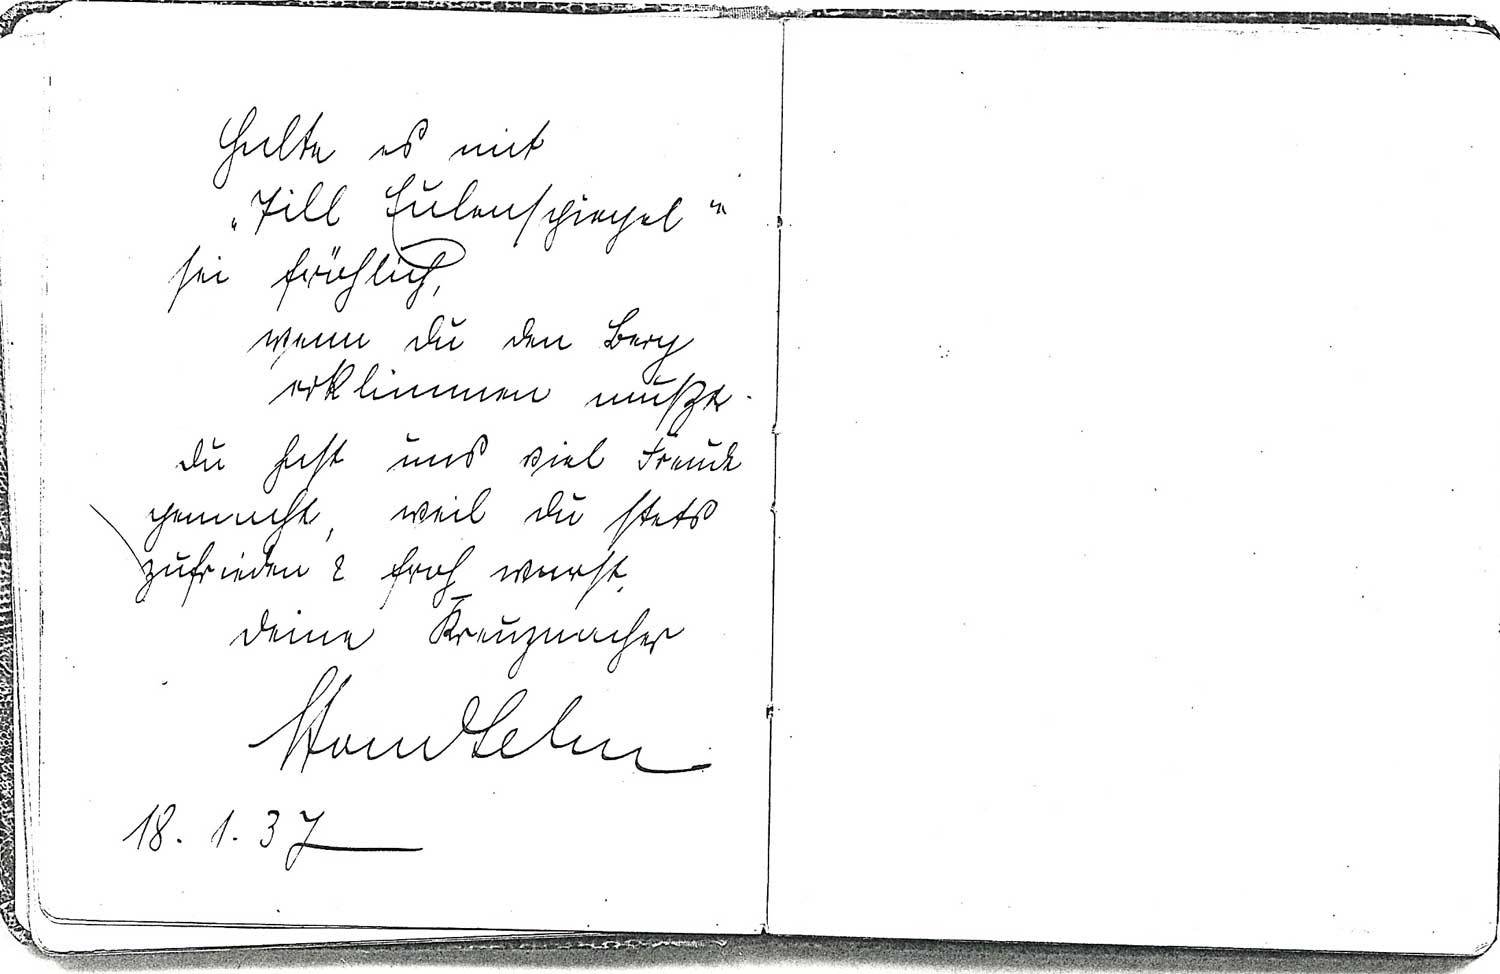 Halte es mit
„Till Eulenspiegel"
sei fröhlich,
wenn du den Berg
erklimmen mußt.
Du hast uns viel Freude
gemacht, weil du stets
zufrieden & froh warst.
Deine Kreuznacher
18. 1. 37